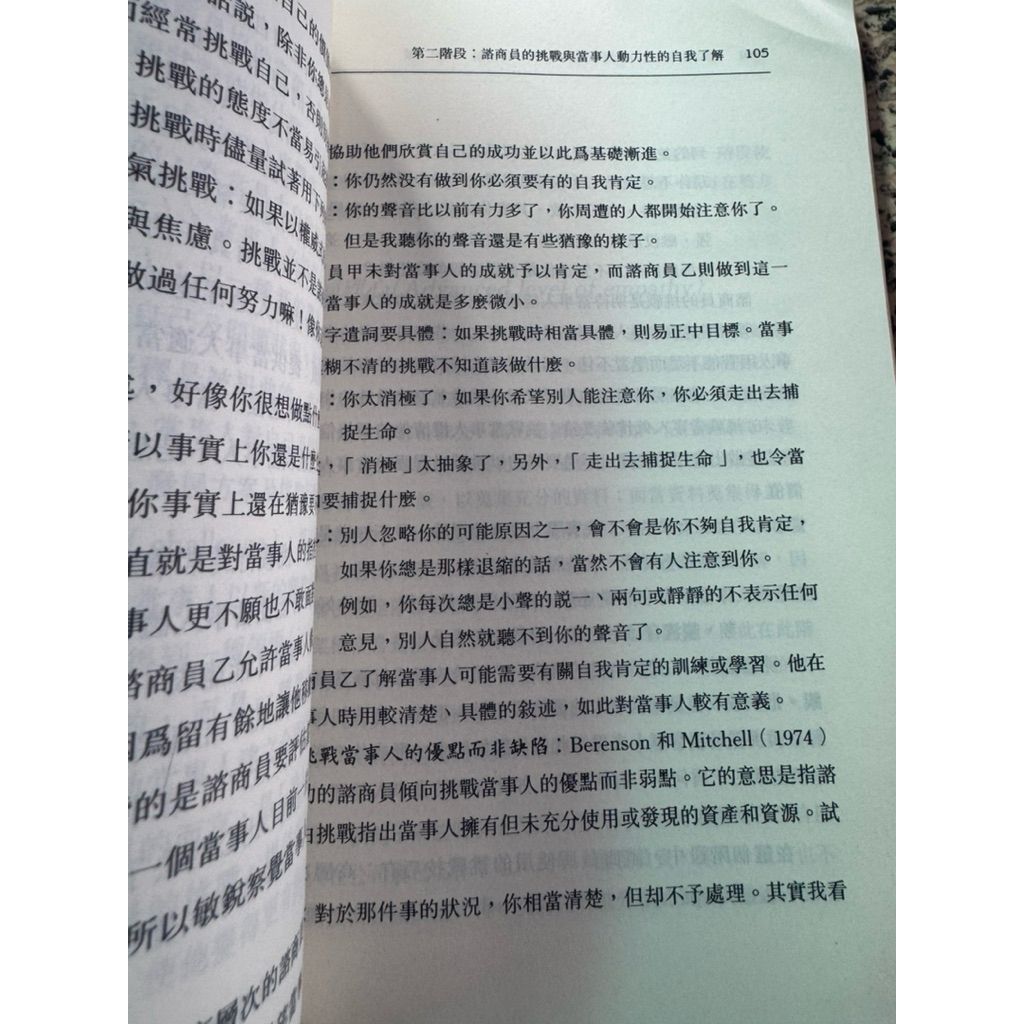 自己的
話說，除非你總是
經常挑戰自己，否則
挑戰的態度不當易引
挑戰時儘量試著用下
氣挑戰：如果以權威
與焦慮。挑戰並不是
做過任何努力嘛！像你
，好像你很想做點什
以事實上你還是什麼
你事實上還在猶豫要
直就是對當事人的指控
事人更不願也不敢面
諮商員乙允許當事人
因爲留有餘地讓他
的是諮商員要評估
一個當事人目前
所以敏銳察覺當事
層次的諮商
第二階段：諮商員的挑戰與當事人動力性的自我了解 105
協助他們欣賞自己的成功並以此爲基礎漸進。
：你仍然没有做到你必須要有的自我肯定。
：你的聲音比以前有力多了，你周遭的人都開始注意你了。
但是我聽你的聲音還是有些猶豫的樣子。
員甲未對當事人的成就予以肯定，而諮商員乙則做到這一
當事人的成就是多麼微小。
字遣詞要具體：如果挑戰時相當具體，則易正中目標。當事
糊不清的挑戰不知道該做什麼。
：你太消極了，如果你希望別人能注意你，你必須走出去捕
捉生命。
，「消極」太抽象了，另外，「走出去捕捉生命」，也令當
要捕捉什麼。
：別人忽略你的可能原因之一，會不會是你不夠自我肯定，
如果你總是那樣退縮的話，當然不會有人注意到你。
例如，你每次總是小聲的說一、兩句或靜靜的不表示任何
意見，別人自然就聽不到你的聲音了。
員乙了解當事人可能需要有關自我肯定的訓練或學習。他在
事人時用較清楚、具體的敘述，如此對當事人較有意義。
挑戰當事人的優點而非缺陷：Berenson 和 Mitchell（1974）
功的諮商員傾向挑戰當事人的優點而非弱點。它的意思是指諮
由挑戰指出當事人擁有但未充分使用或發現的資產和資源。試
：對於那件事的狀況，你相當清楚，但却不予處理。其實我看